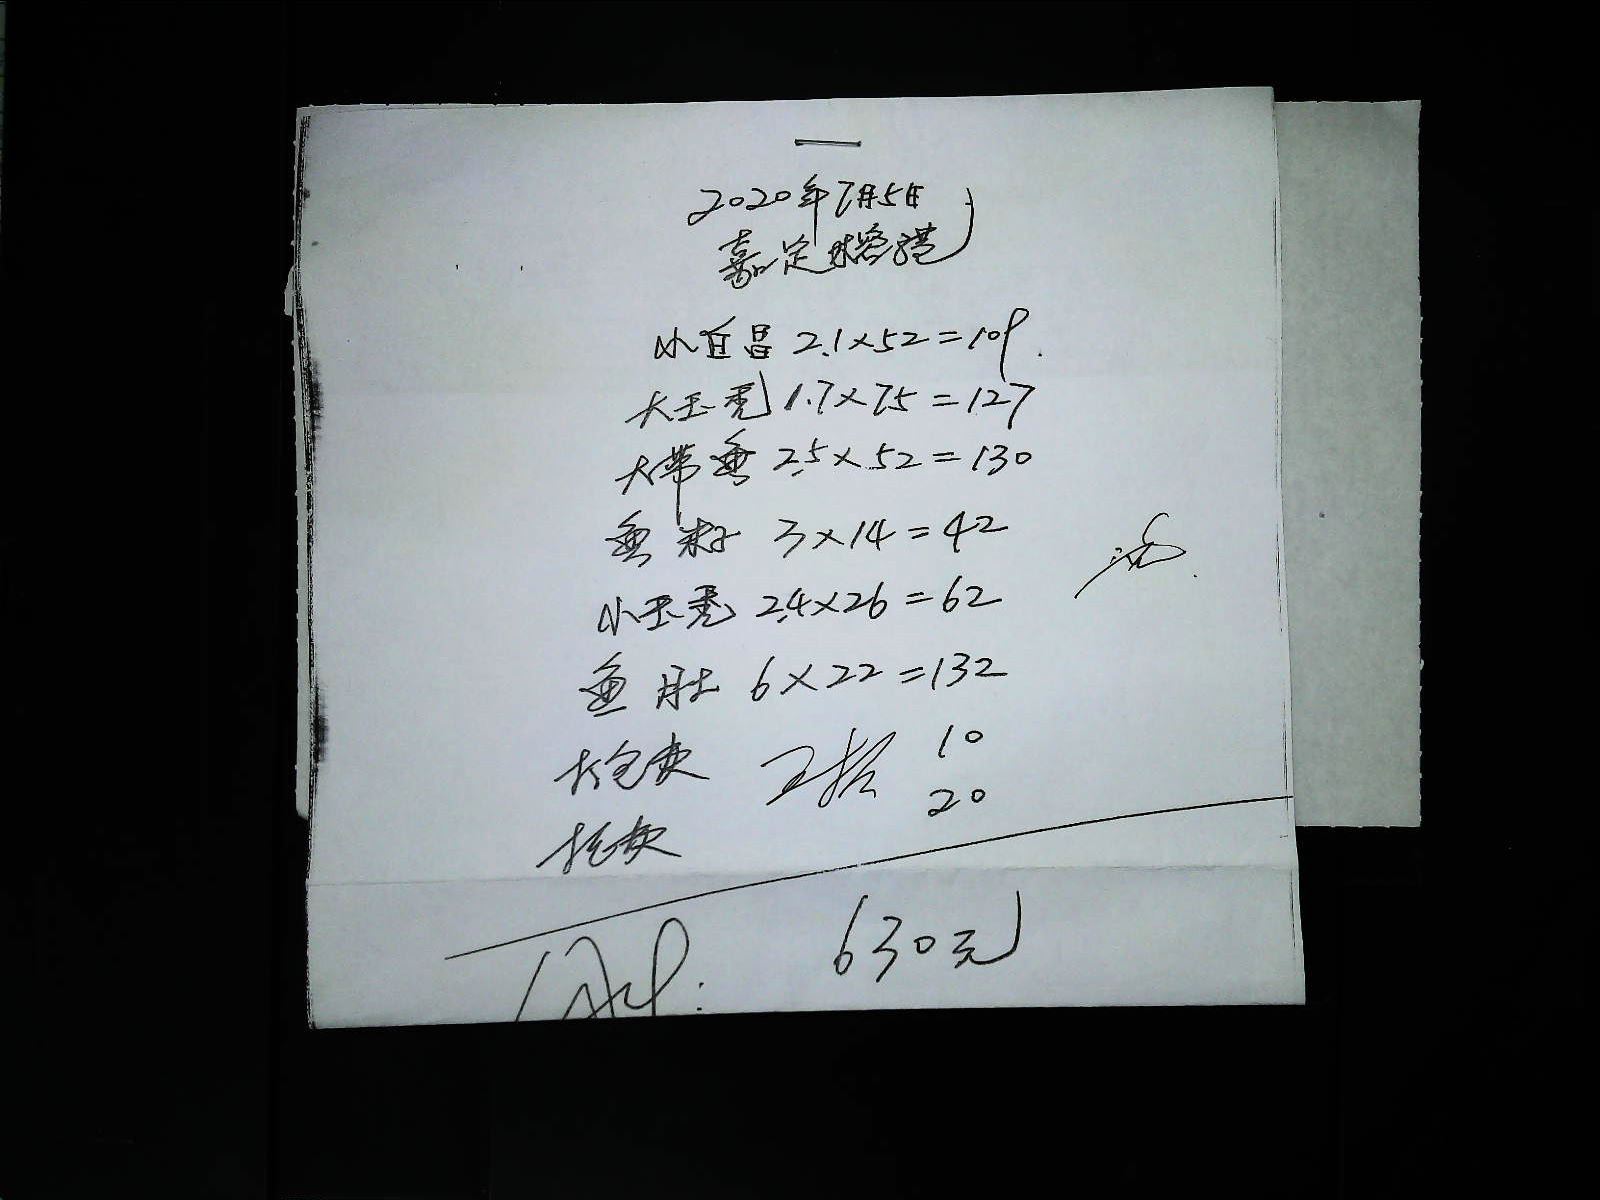 2020年7月5日
嘉定
小白昌 2.1×52=109.
大玉秃 1.7×75=127
大带鱼 2.5×52=130
鱼籽 3×14=42
小玉秃 2.4×26=62
鱼肚 6×22=132
打包费 10
托费 20
630元